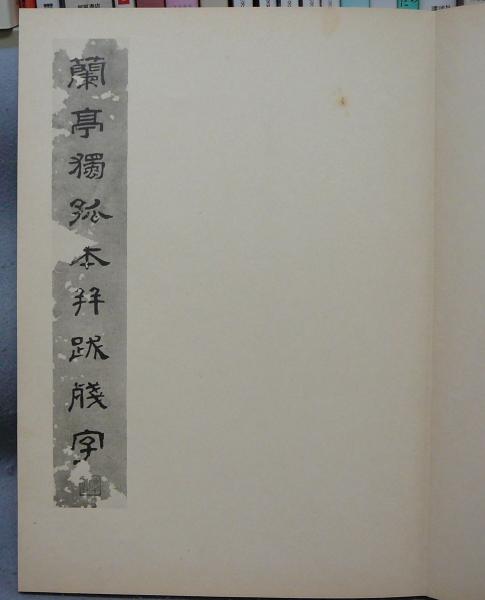 蘭亭獨孤本并跋殘字